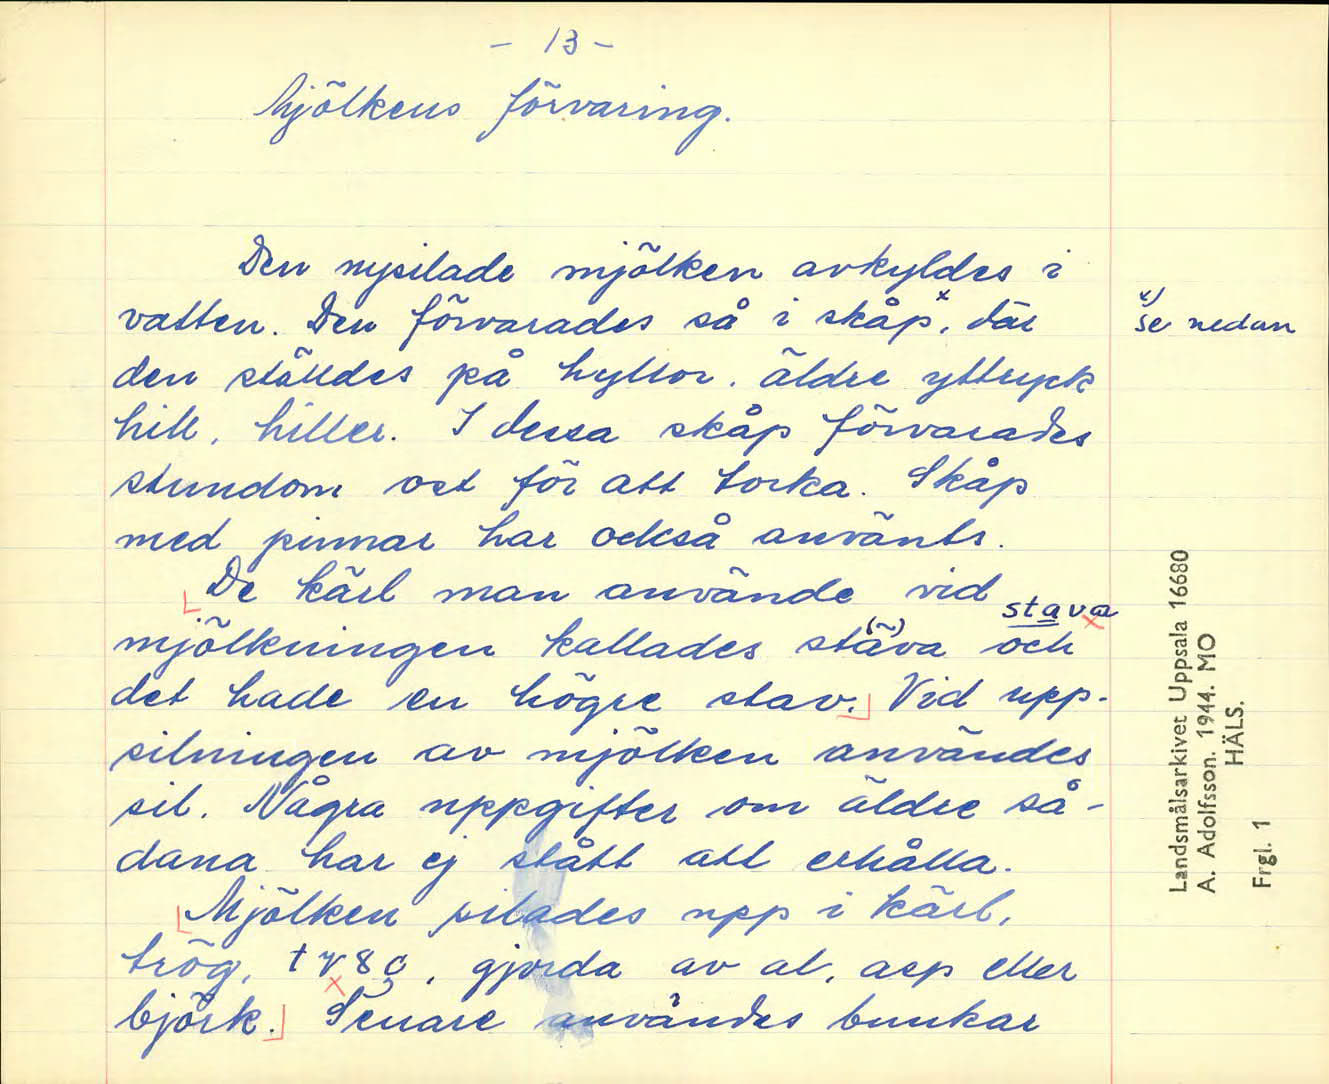 - 13 -
Mjölkens förvaring.
Den nysilade mjölken avkyldes i
vatten. Den förvarades så i skåp x, där
x) se nedan
den ställdes på hyllor. äldre yttryck
hill, hiller. I dessa skåp förvarades
stundom ost för att torka. Skåp
med pinnar har också använts.
De kärl man använde vid
stava
mjölkningen kallades stäva och
det hade en högre stav. Vid upp-
silningen av mjölken användes
sil. Några uppgifter om äldre så-
dana har ej stått att erhålla.
Mjölken silades upp i kärl,
tråg, gjorda av al, asp eller
björk. Senare användes bunkar
Landsmålsarkivet Uppsala 16680
A. Adolfsson. 1944. MO
HÄLS.
Frgl. 1